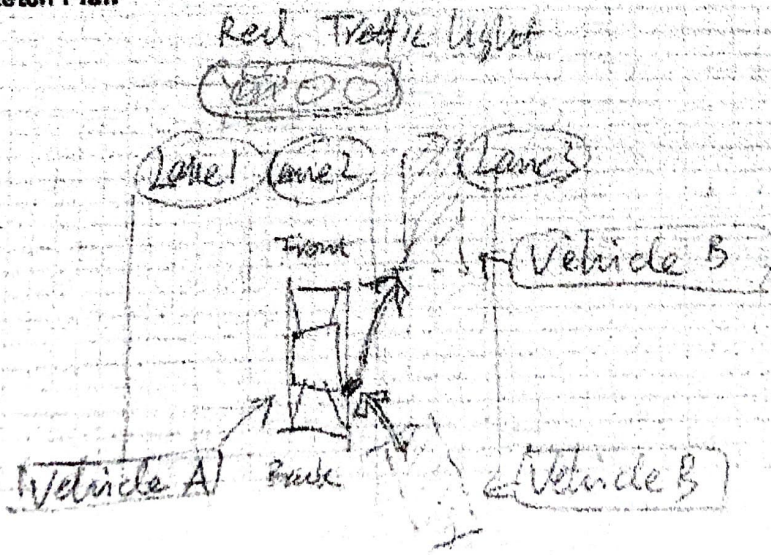 Plan
Red Traffic Light
Lane1 Lane2 Lane3
Front
Vehicle B
Vehicle A Vehicle B